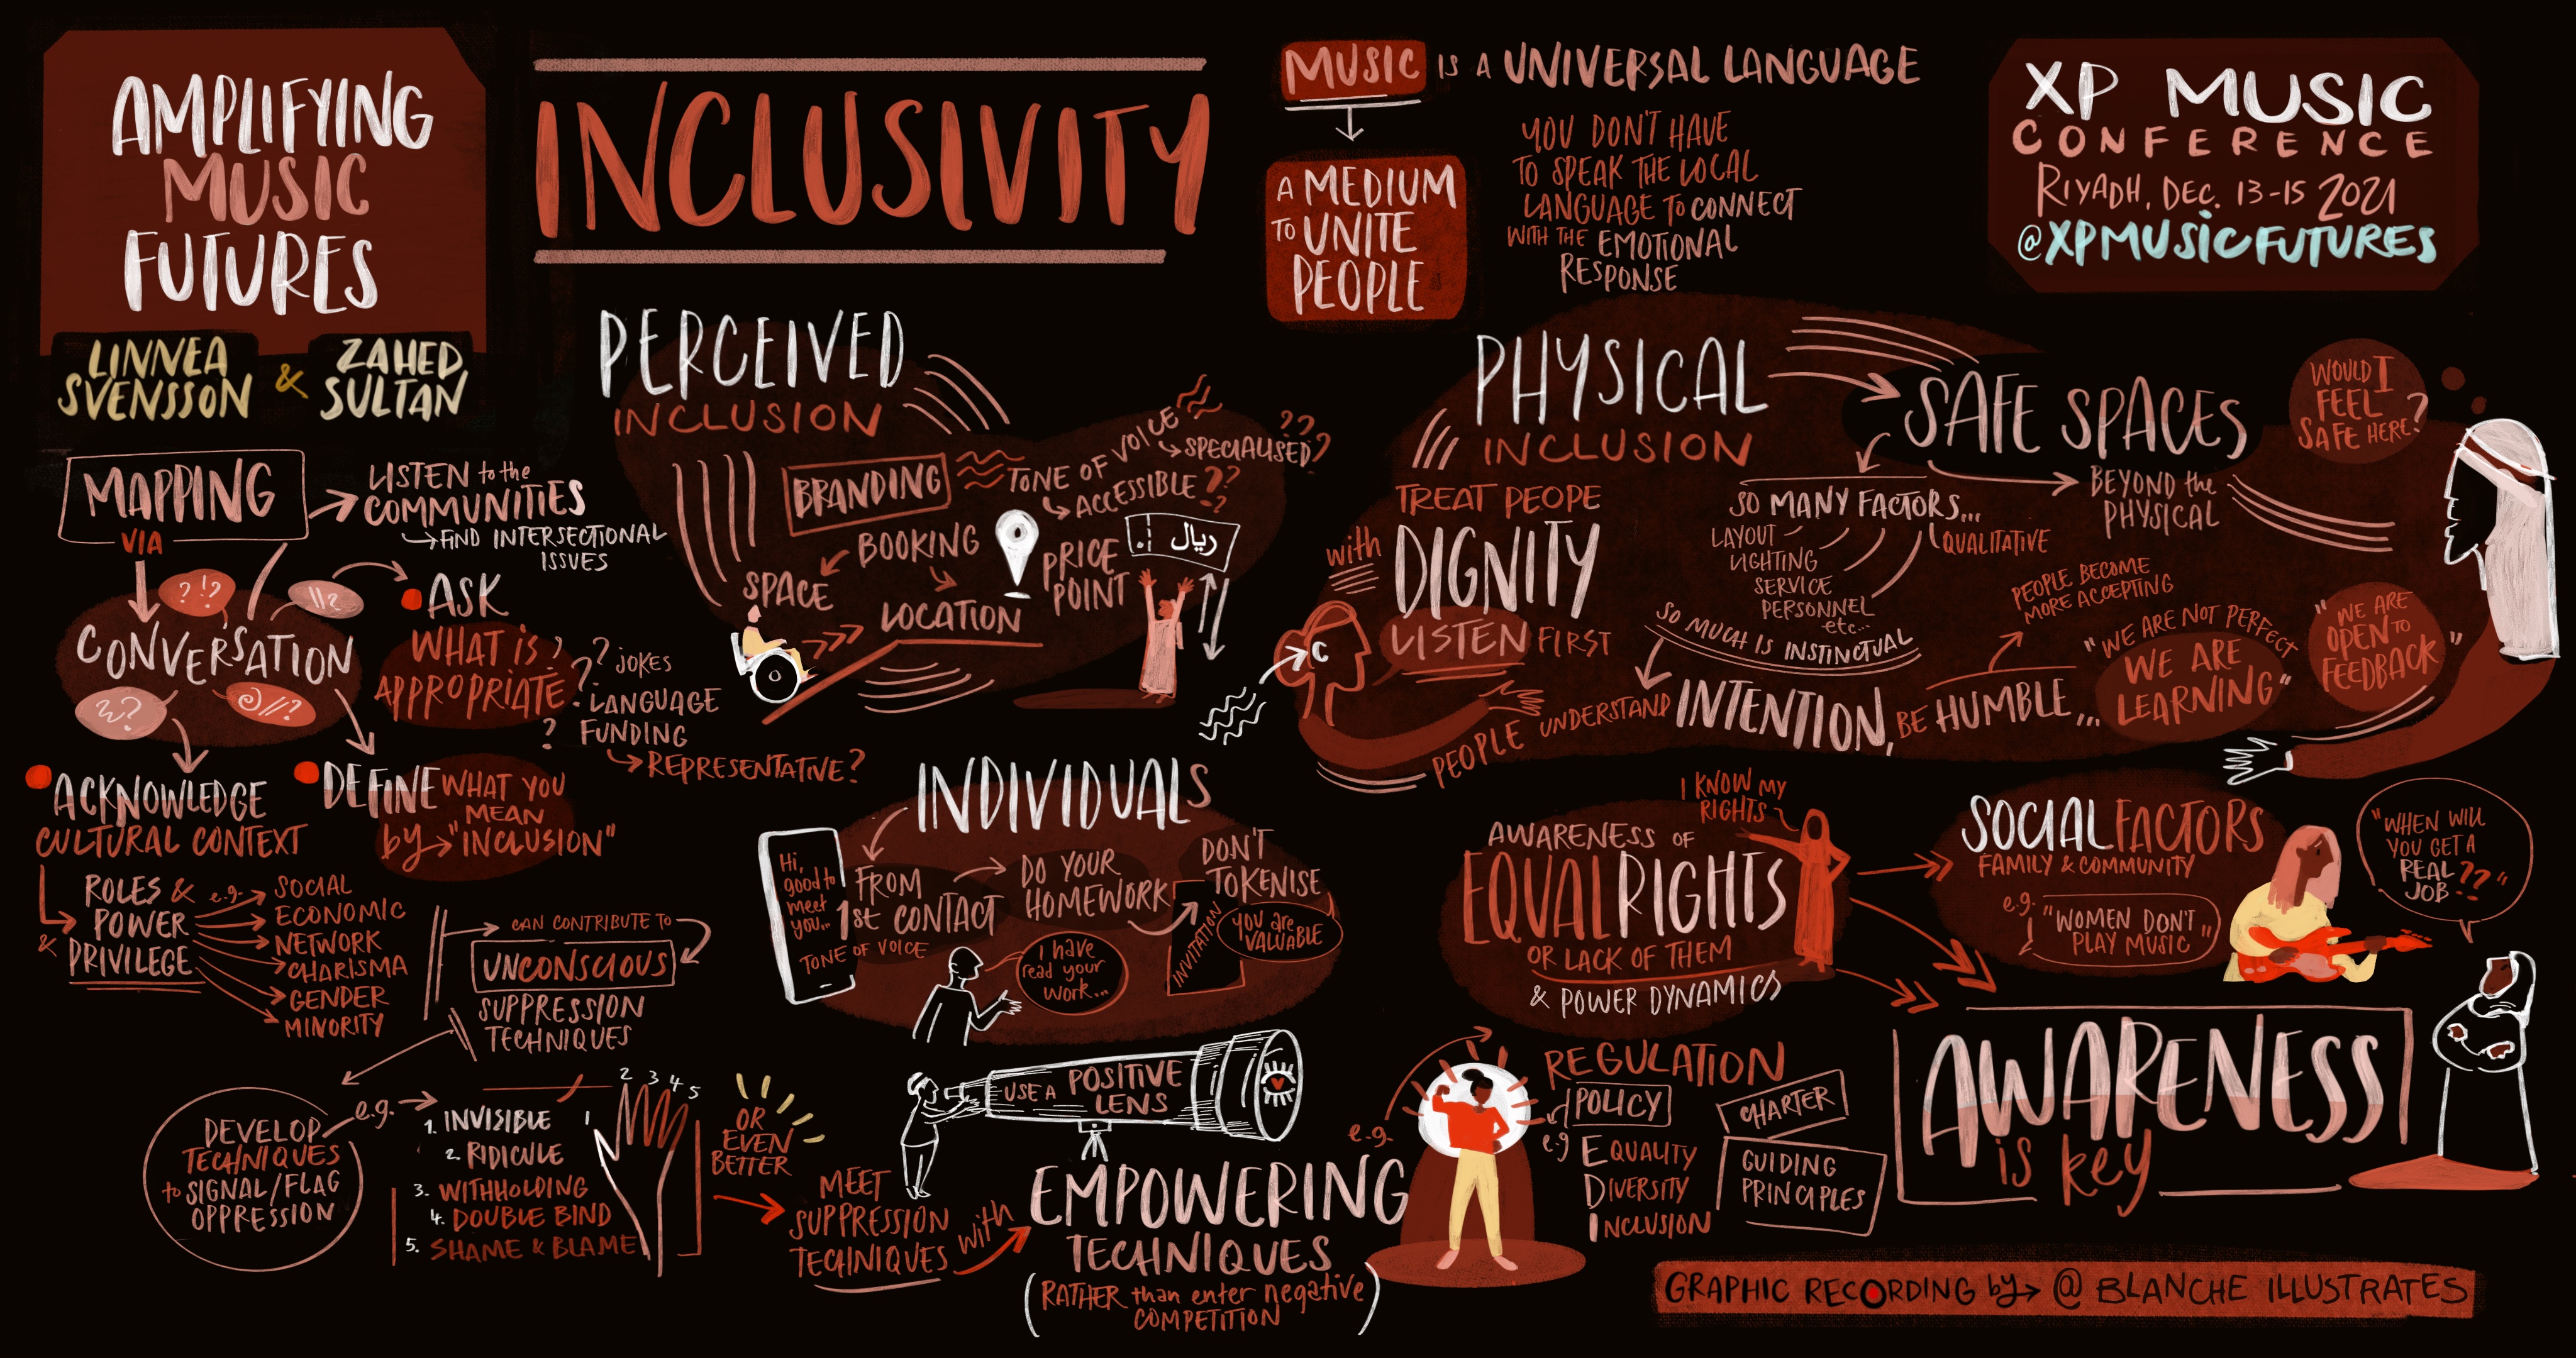 AMPLIFYING
MUSIC
FUTURES
LINNEA
SVENSSON
&
ZAHED
SULTAN
INCLUSIVITY
MUSIC IS A UNIVERSAL LANGUAGE
A MEDIUM
TO UNITE
PEOPLE
YOU DON'T HAVE
TO SPEAK THE LOCAL
LANGUAGE TO CONNECT
WITH THE EMOTIONAL
RESPONSE
XP MUSIC
CONFERENCE
RIYADH, DEC. 13-15 2021
@XPMUSICFUTURES
MAPPING
VIA
LISTEN to the
COMMUNITIES
FIND INTERSECTIONAL
ISSUES
?!?
!!?
CONVERSATION
??
@//?
ASK
WHAT IS ?
APPROPRIATE
? ? ?
?
JOKES
LANGUAGE
FUNDING
REPRESENTATIVE?
ACKNOWLEDGE
CULTURAL CONTEXT
DEFINE WHAT YOU
MEAN
by "INCLUSION"
ROLES &
POWER
& PRIVILEGE
e.g.
SOCIAL
ECONOMIC
NETWORK
CHARISMA
GENDER
MINORITY
CAN CONTRIBUTE TO
UNCONSCIOUS
SUPPRESSION
TECHNIQUES
DEVELOP
TECHNIQUES
to SIGNAL/FLAG
OPPRESSION
e.g.
1. INVISIBLE
2. RIDICULE
3. WITHHOLDING
4. DOUBLE BIND
5. SHAME & BLAME
1 2 3 4 5
OR
EVEN
BETTER
MEET
SUPPRESSION
TECHNIQUES with
EMPOWERING
TECHNIQUES
(RATHER than enter negative
COMPETITION)
USE A POSITIVE
LENS
PERCEIVED
INCLUSION
BRANDING
TONE OF VOICE
SPECIALISED?
???
ACCESSIBLE??
?
BOOKING
SPACE
LOCATION
PRICE
POINT
ريال
INDIVIDUALS
Hi,
good to
meet
you...
FROM
1st CONTACT
TONE OF VOICE
DO YOUR
HOMEWORK
I have
read your
work...
DON'T
TOKENISE
INVITATION
YOU are
VALUABLE
PHYSICAL
INCLUSION
TREAT PEOPE
with DIGNITY
LISTEN FIRST
SAFE SPACES
SO MANY FACTORS...
LAYOUT
LIGHTING
SERVICE
PERSONNEL
etc...
QUALITATIVE
BEYOND the
PHYSICAL
WOULD I
FEEL
SAFE HERE?
SO MUCH IS INSTINCTUAL
PEOPLE UNDERSTAND INTENTION, BE HUMBLE...
PEOPLE BECOME
MORE ACCEPTING
"WE ARE NOT PERFECT
WE ARE
LEARNING"
"WE ARE
OPEN TO
FEEDBACK"
I KNOW MY
RIGHTS
AWARENESS OF
EQUAL RIGHTS
OR LACK OF THEM
& POWER DYNAMICS
SOCIAL FACTORS
FAMILY & COMMUNITY
e.g.
"WOMEN DON'T
PLAY MUSIC"
"WHEN WILL
YOU GET A
REAL
JOB??"
e.g.
REGULATION
POLICY
e.g
EQUALITY
DIVERSITY
INCLUSION
CHARTER
GUIDING
PRINCIPLES
AWARENESS
is key
GRAPHIC RECORDING by @ BLANCHE ILLUSTRATES